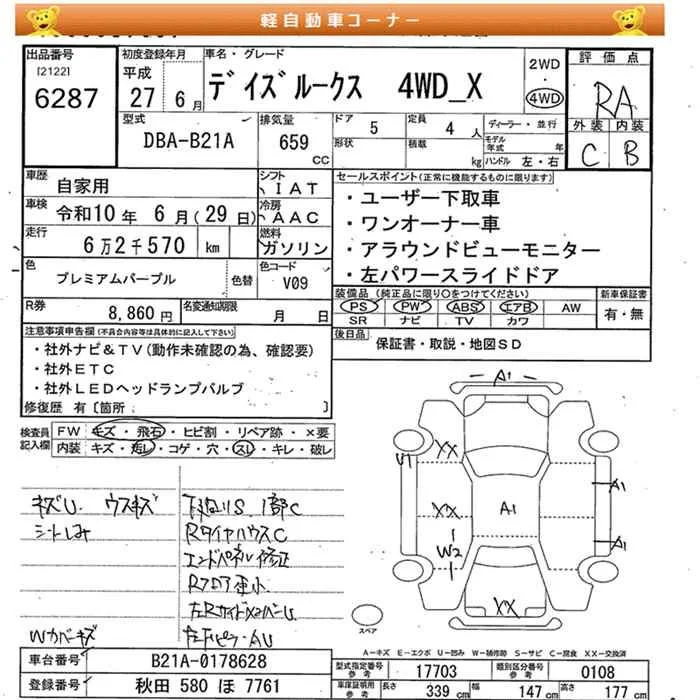 軽自動車コーナー
出品番号
[2122]
6287
初度登録年月
平成
27 年 6 月
車名・グレード
デイズルークス 4WD_X
2WD
・
4WD
評価点
RA
外装 内装
C B
型式
DBA-B21A
排気量
659
CC
ドア 5
定員 4 人
形状
積載 kg
ディーラー・並行
モデル年式 年
ハンドル 左・右
車歴
自家用
シフト
IAT
車検
令和10年 6月(29日)
冷房
AAC
走行
6万2千570 km
燃料
ガソリン
色
プレミアムパープル
色替
色コード
V09
R券
8,860円
名変通知期限
月 日
セールスポイント(正常に機能するものに限ります)
・ユーザー下取車
・ワンオーナー車
・アラウンドビューモニター
・左パワースライドドア
装備品(純正品に限り○をつけてください)
PS PW ABS エアB AW
SR ナビ TV カワ
新車保証書
有・無
後日品
保証書・取説・地図SD
注意事項申告欄(不具合内容等は具体的に記入して下さい)
・社外ナビ&TV(動作未確認の為、確認要)
・社外ETC
・社外LEDヘッドランプバルブ
修復歴 有〔箇所 〕
検査員記入欄
FW キズ・飛石・ヒビ割・リペア跡・×要
内装 キズ・汚レ・コゲ・穴・スレ・キレ・破レ
キズU ウスキズ
シートしみ
Wカバーキズ
下廻りS 1部C
RタイヤハウスC
エンドパネル修正
Rフロア歪小
左RサイドメンバーU
A1
XX
U1
A1
XX
A1
W2
A1
XX
スペア
A-キズ E-エクボ U-凹み W-補修跡 S-サビ C-腐食 XX-交換済
車台番号
B21A-0178628
登録番号
秋田 580 ほ 7761
型式指定番号
参考
17703
類別区分番号
参考
0108
車検証明用
参考
長さ
339 cm
幅
147 cm
高さ
177 cm